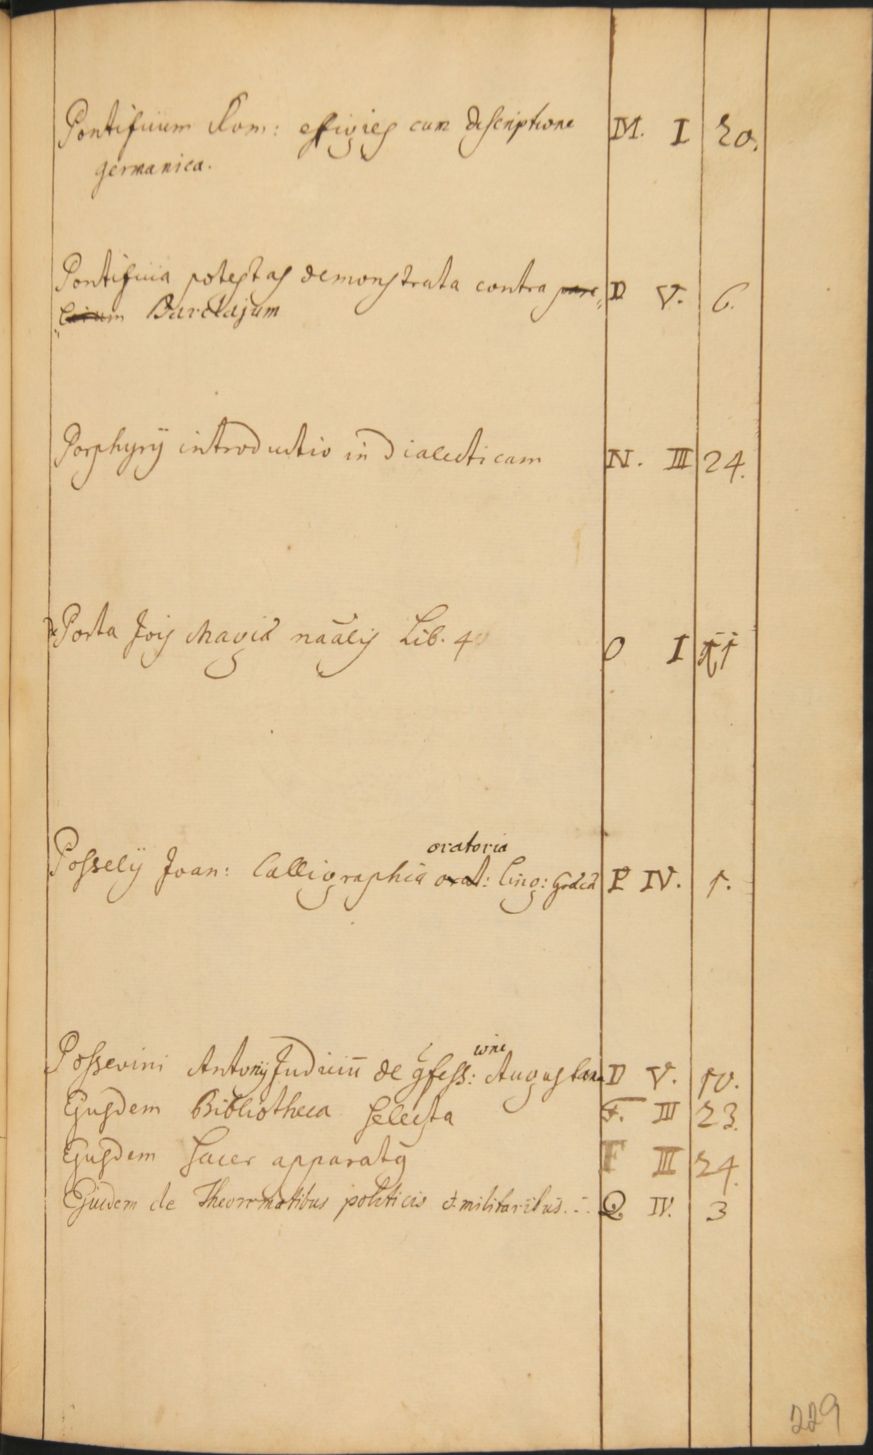 Pontificum Rom: effigies cum descriptione M. I 20.
germanica.
Pontificia potestas demonstrata contra D V. 6.
Barclajum
Porphyrij introductio in Dialecticam N. III 24.
Porta Jois Magiæ naālis Lib. 4 O I 11
oratoria
Posselij Joan: Calligraphia orat: Ling: Græcæ P IV. 1.
ione
Possevini Antonij Judiciū de 9fess: Augustana D V. 10.
Ejusdem Bibliotheca selecta F. III 23.
Ejusdem Sacer apparat9 F III 24.
Ejusdem de Theormatibus politicis et militaribus. Q. IV. 3
229